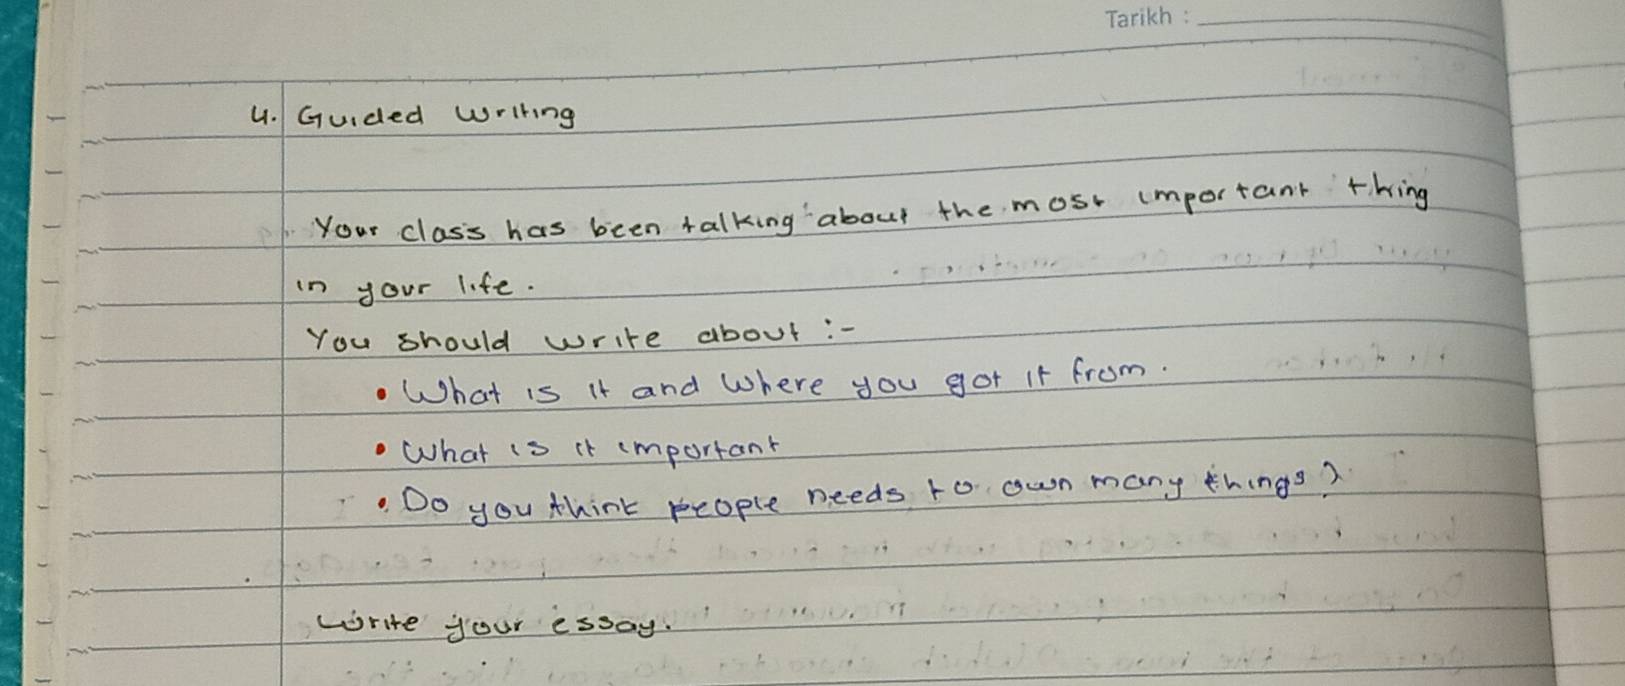 Tarikh :
4. Guided Writing
Your class has been talking about the most important thing
in your life.
You should write about :-
• What is it and Where you got it from.
• What is it important
• Do you think people needs to own many things?
Write your essay.